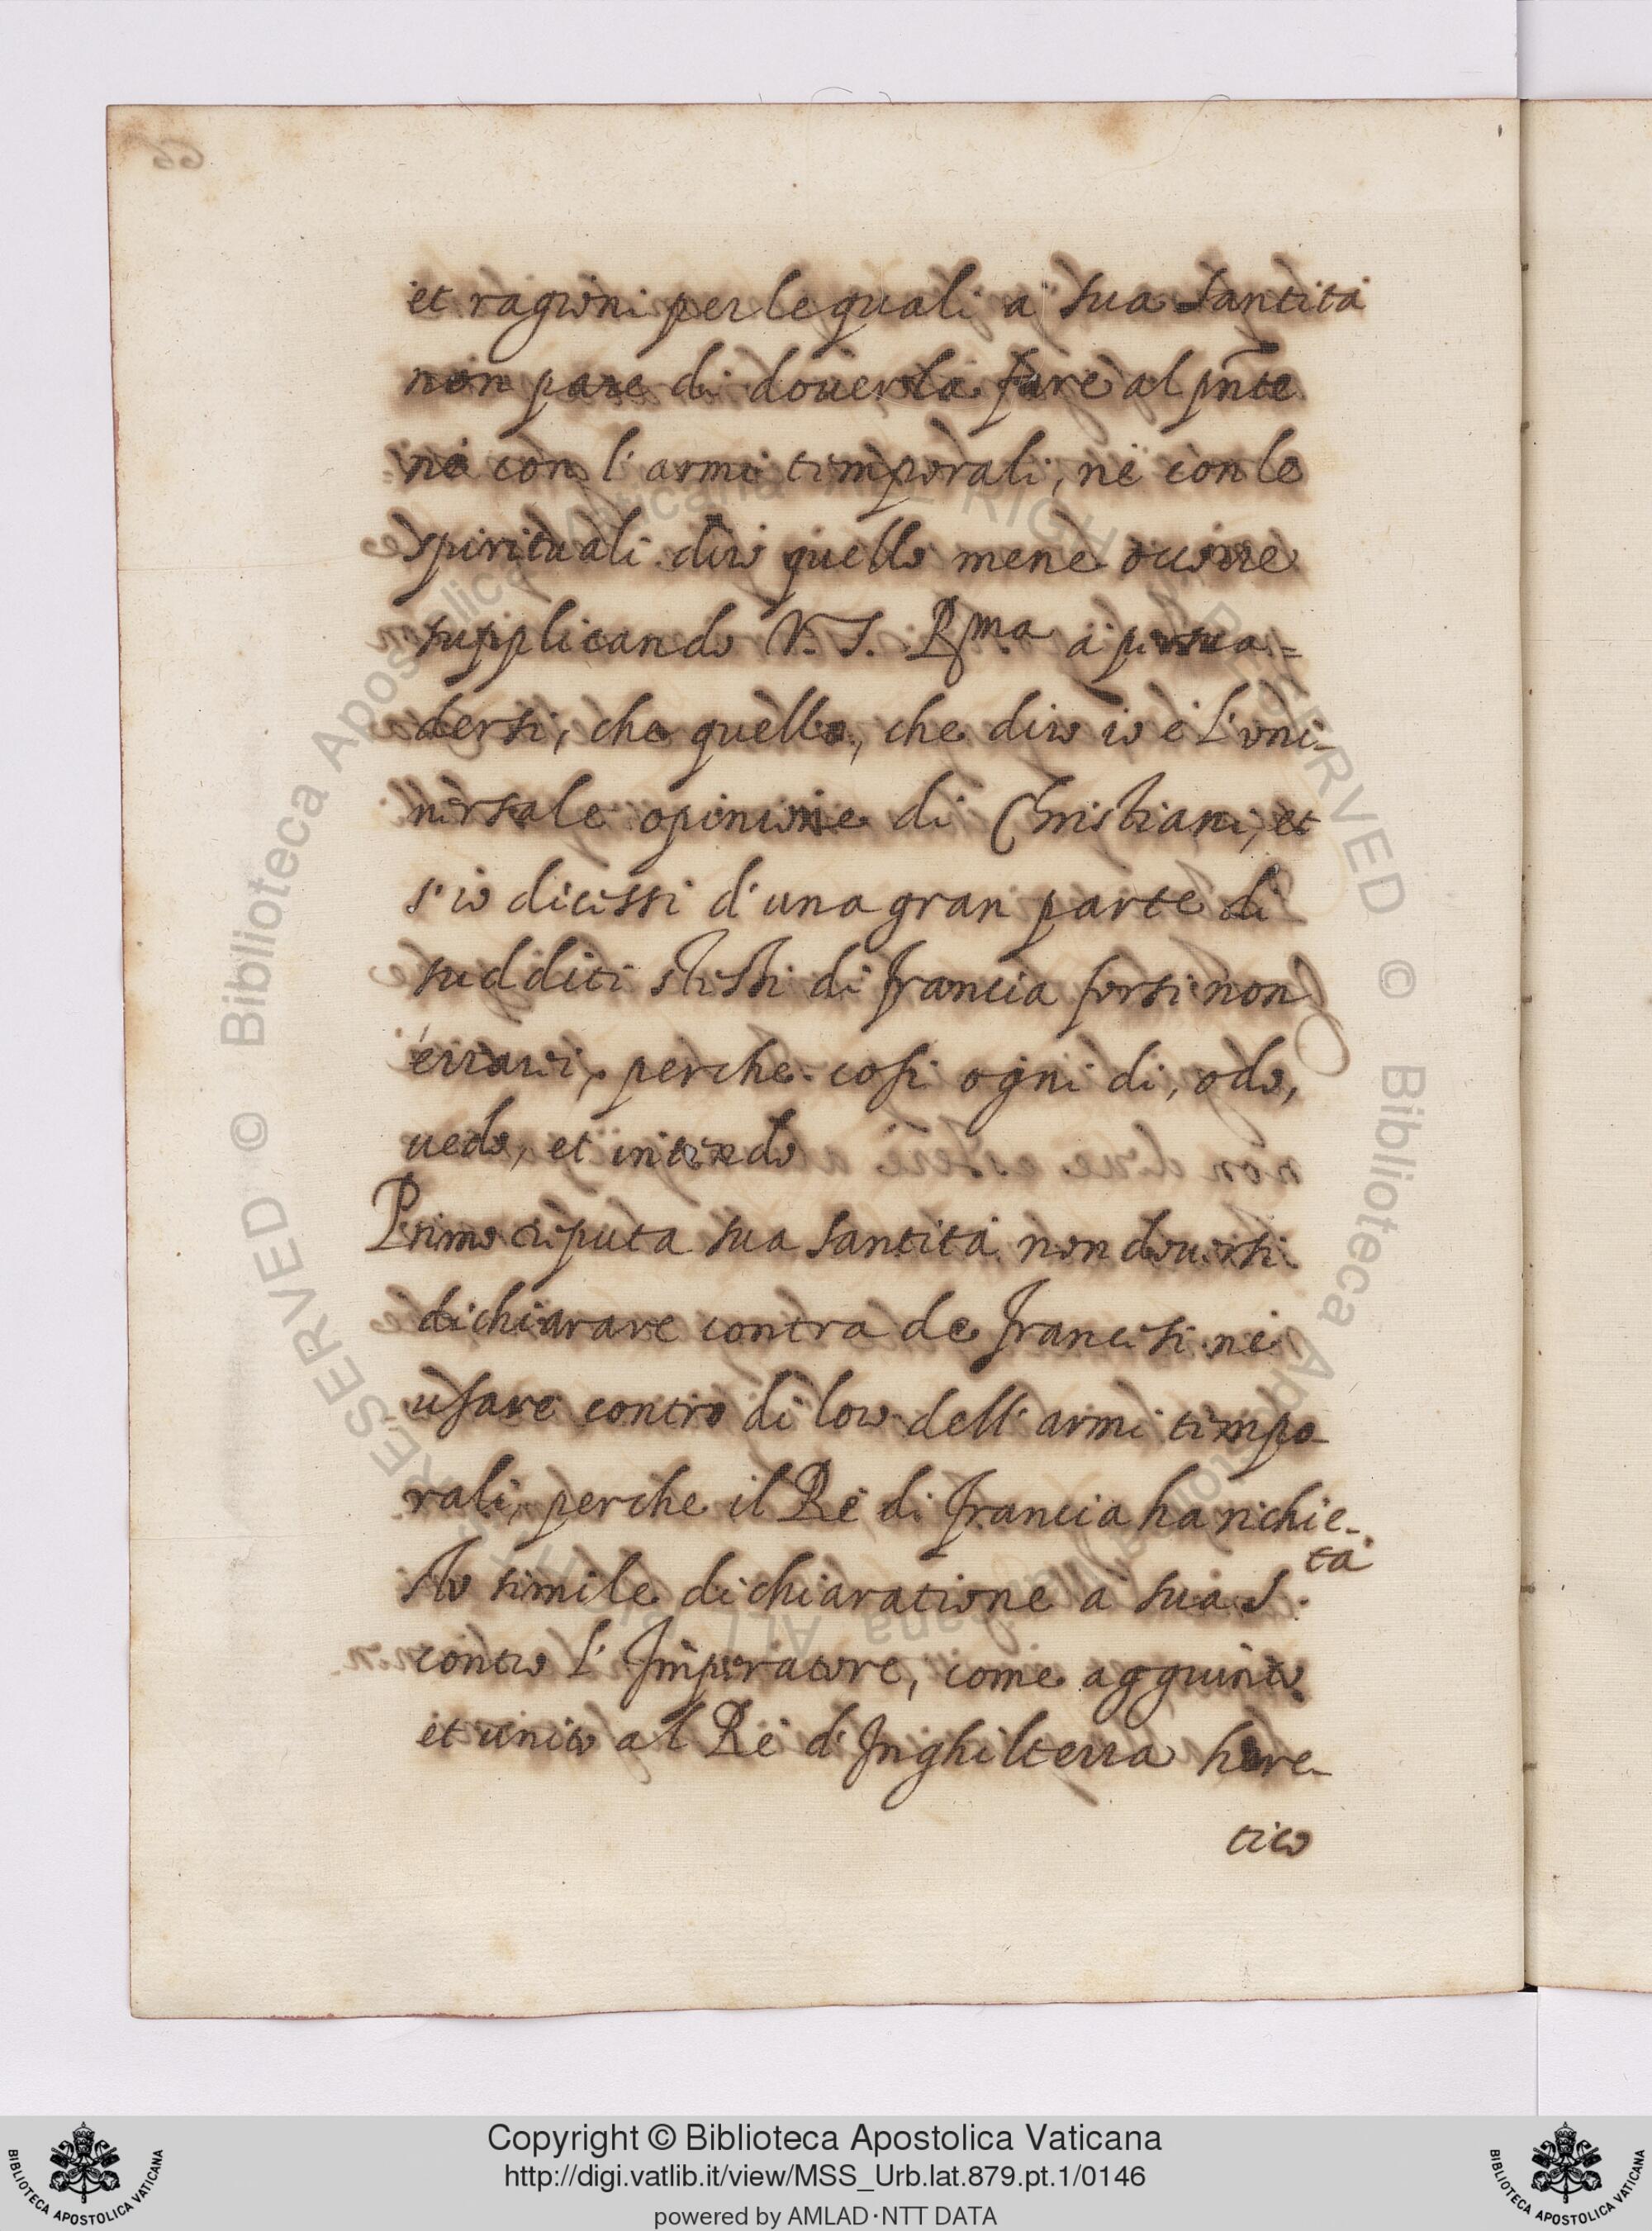 et ragioni per le quali a sua Santità
non pare di doverla fare al pñte
nè con l'armi temporali, nè con le
spirituali dirò quello mene occorre
supplicando V. S. R.ma a persua=
dersi, che quello, che dirò io è l'uni-
versale opinione di Christiani, et
s'io dicessi d'una gran parte di
sudditi stessi di Francia forsi non
errarei, perche cosi ogni di, odo,
uedo, et intendo
Primo reputa sua Santità non douersi
dichiarare contra de Francesi nè
usare contro di loro dell'armi tempo-
rali, perche il Rè di Francia ha richie-
sto simile dichiaratione a sua S.tà
contro l'Imperatore, come aggiunto
et unito al Rè d'Inghilterra here-
tico
Copyright © Biblioteca Apostolica Vaticana
http://digi.vatlib.it/view/MSS_Urb.lat.879.pt.1/0146
powered by AMLAD·NTT DATA
BIBLIOTECA APOSTOLICA VATICANA
BIBLIOTECA APOSTOLICA VATICANA